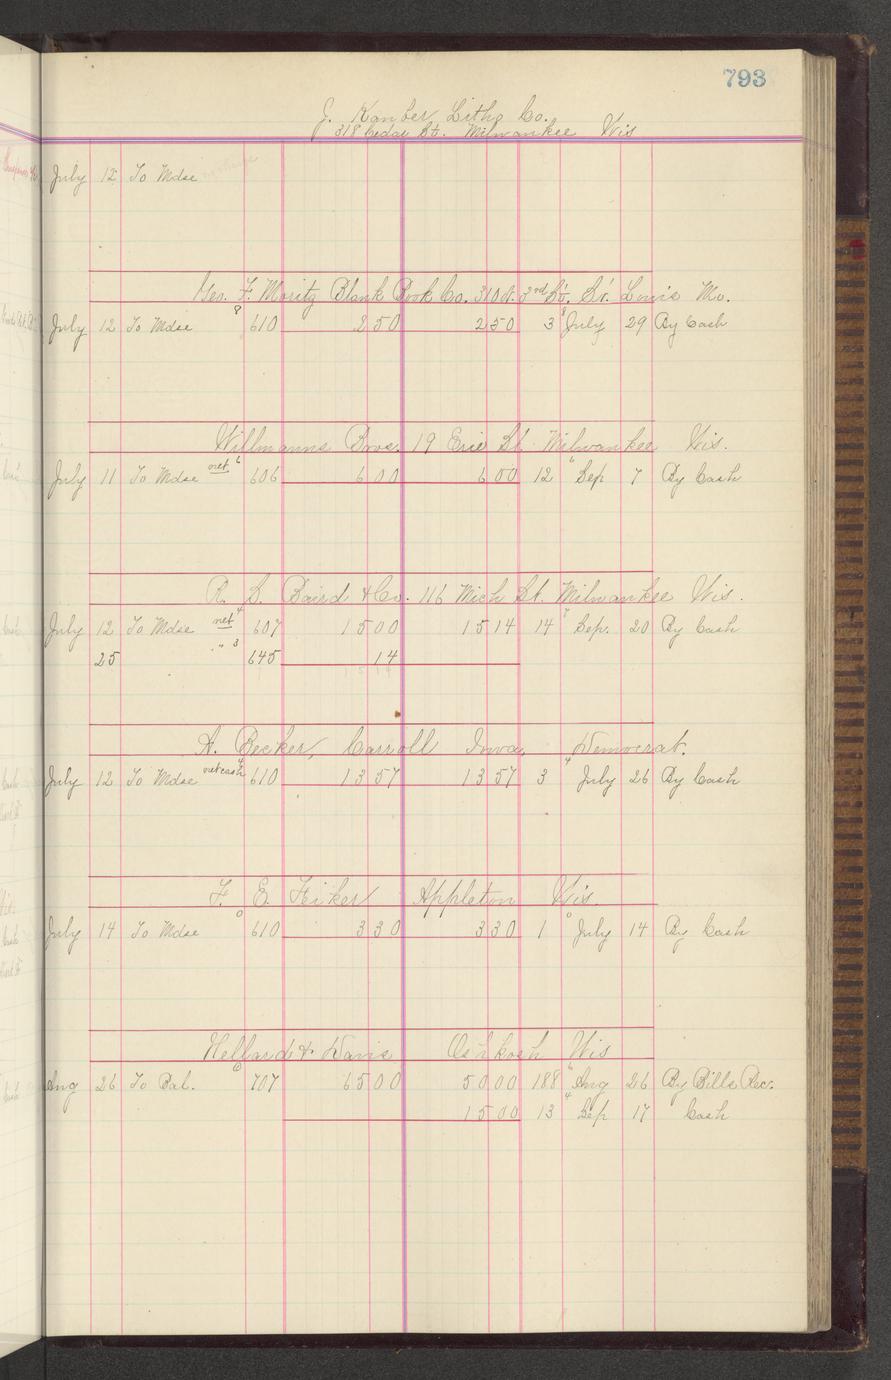 793
Litho Co.
318 Cedar St. Milwaukee Wis
July 12 To Mdse
Geo. F. Moritz Blank Book Co. 310 N. 3rd St. St. Louis Mo.
July 12 To Mdse 8 610 2 50 2 50 3 8 July 29 By Cash
Willmanns Bros. 19 Erie St. Milwaukee Wis.
July 11 To Mdse net 6 606 6 00 6 00 12 6 Sep 7 By Cash
R. S. Baird & Co. 116 Mich St. Milwaukee Wis.
July 12 To Mdse net 4 607 15 00 15 14 14 7 Sep. 20 By Cash
25 " 3 645 14
15 14
A. Becker, Carroll Iowa, Democrat.
July 12 To Mdse net cash 4 610 13 57 13 57 3 4 July 26 By Cash
F. E. Appleton Wis.
July 14 To Mdse 0 610 3 30 3 30 1 0 July 14 By Cash
& Davis Oshkosh Wis
Aug 26 To Bal. 6 707 65 00 50 00 188 6 Aug 26 By Bills Rec.
15 00 13 4 Sep 17 Cash